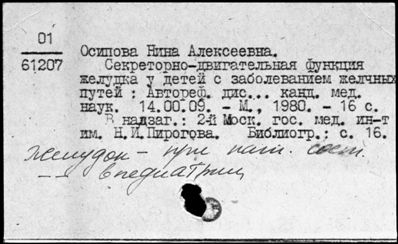 01
61207
Осипова Нина Алексеевна.
Секреторно-двигательная функция
желудка у детей с заболеванием желчных
путей : Автореф. дис... канд. мед.
наук. 14.00.09. - М., 1980. - 16 с.
В надзаг.: 2-й Моск. гос. мед. ин-т
им. Н.И.Пирогова. Библиогр.: с. 16.
Желудок - при пат. сост.
-"- в педиатрии